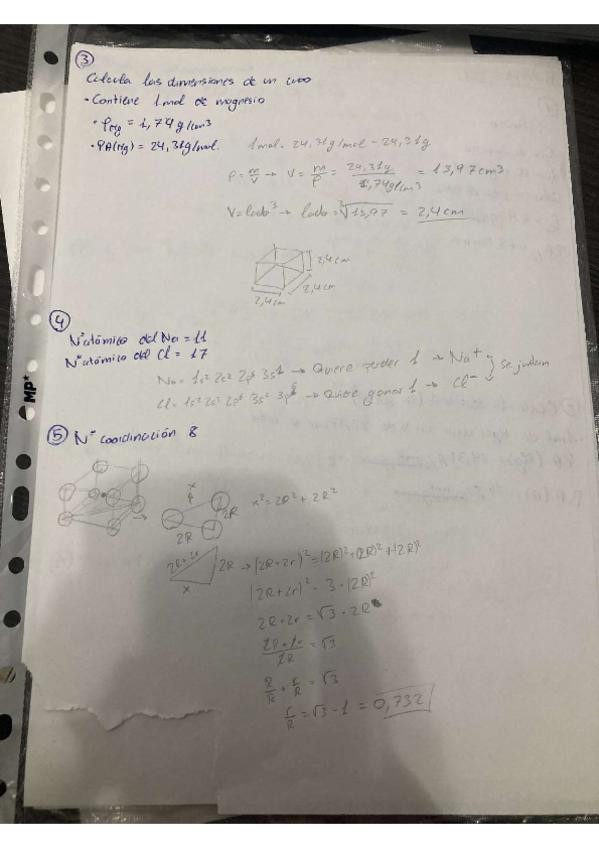 ③
Calcula las dimensiones de un cubo
• Contiene 1mol de magnesio
• ρMg = 1,74 g/cm3
• PA(Mg) = 24,31g/mol. 1mol · 24,31g/mol = 24,31g
ρ = m/V → V = m/ρ = 24,31g / 1,74g/cm3 = 13,97cm3
V = lado³ → lado = ³√13,97 = 2,4cm
2,4cm
2,4cm
2,4cm
④
Nº atómico del Na = 11
Nº atómico del Cl = 17
Na = 1s² 2s² 2p⁶ 3s1 → Quiere perder 1 → Na⁺
Cl = 1s² 2s² 2p⁶ 3s² 3p⁵ → Quiere ganar 1 → Cl⁻
se juntan
MP+
⑤ Nº coordinación 8
x
2R
2R
x² = 2R² + 2R²
2R+2r
2R
x
→ (2R+2r)² = (2R)² + (2R)² + (2R)²
(2R+2r)² = 3 · (2R)²
2R+2r = √3 · 2R
2R+2r / 2R = √3
R/R + r/R = √3
r/R = √3 - 1 = 0,732